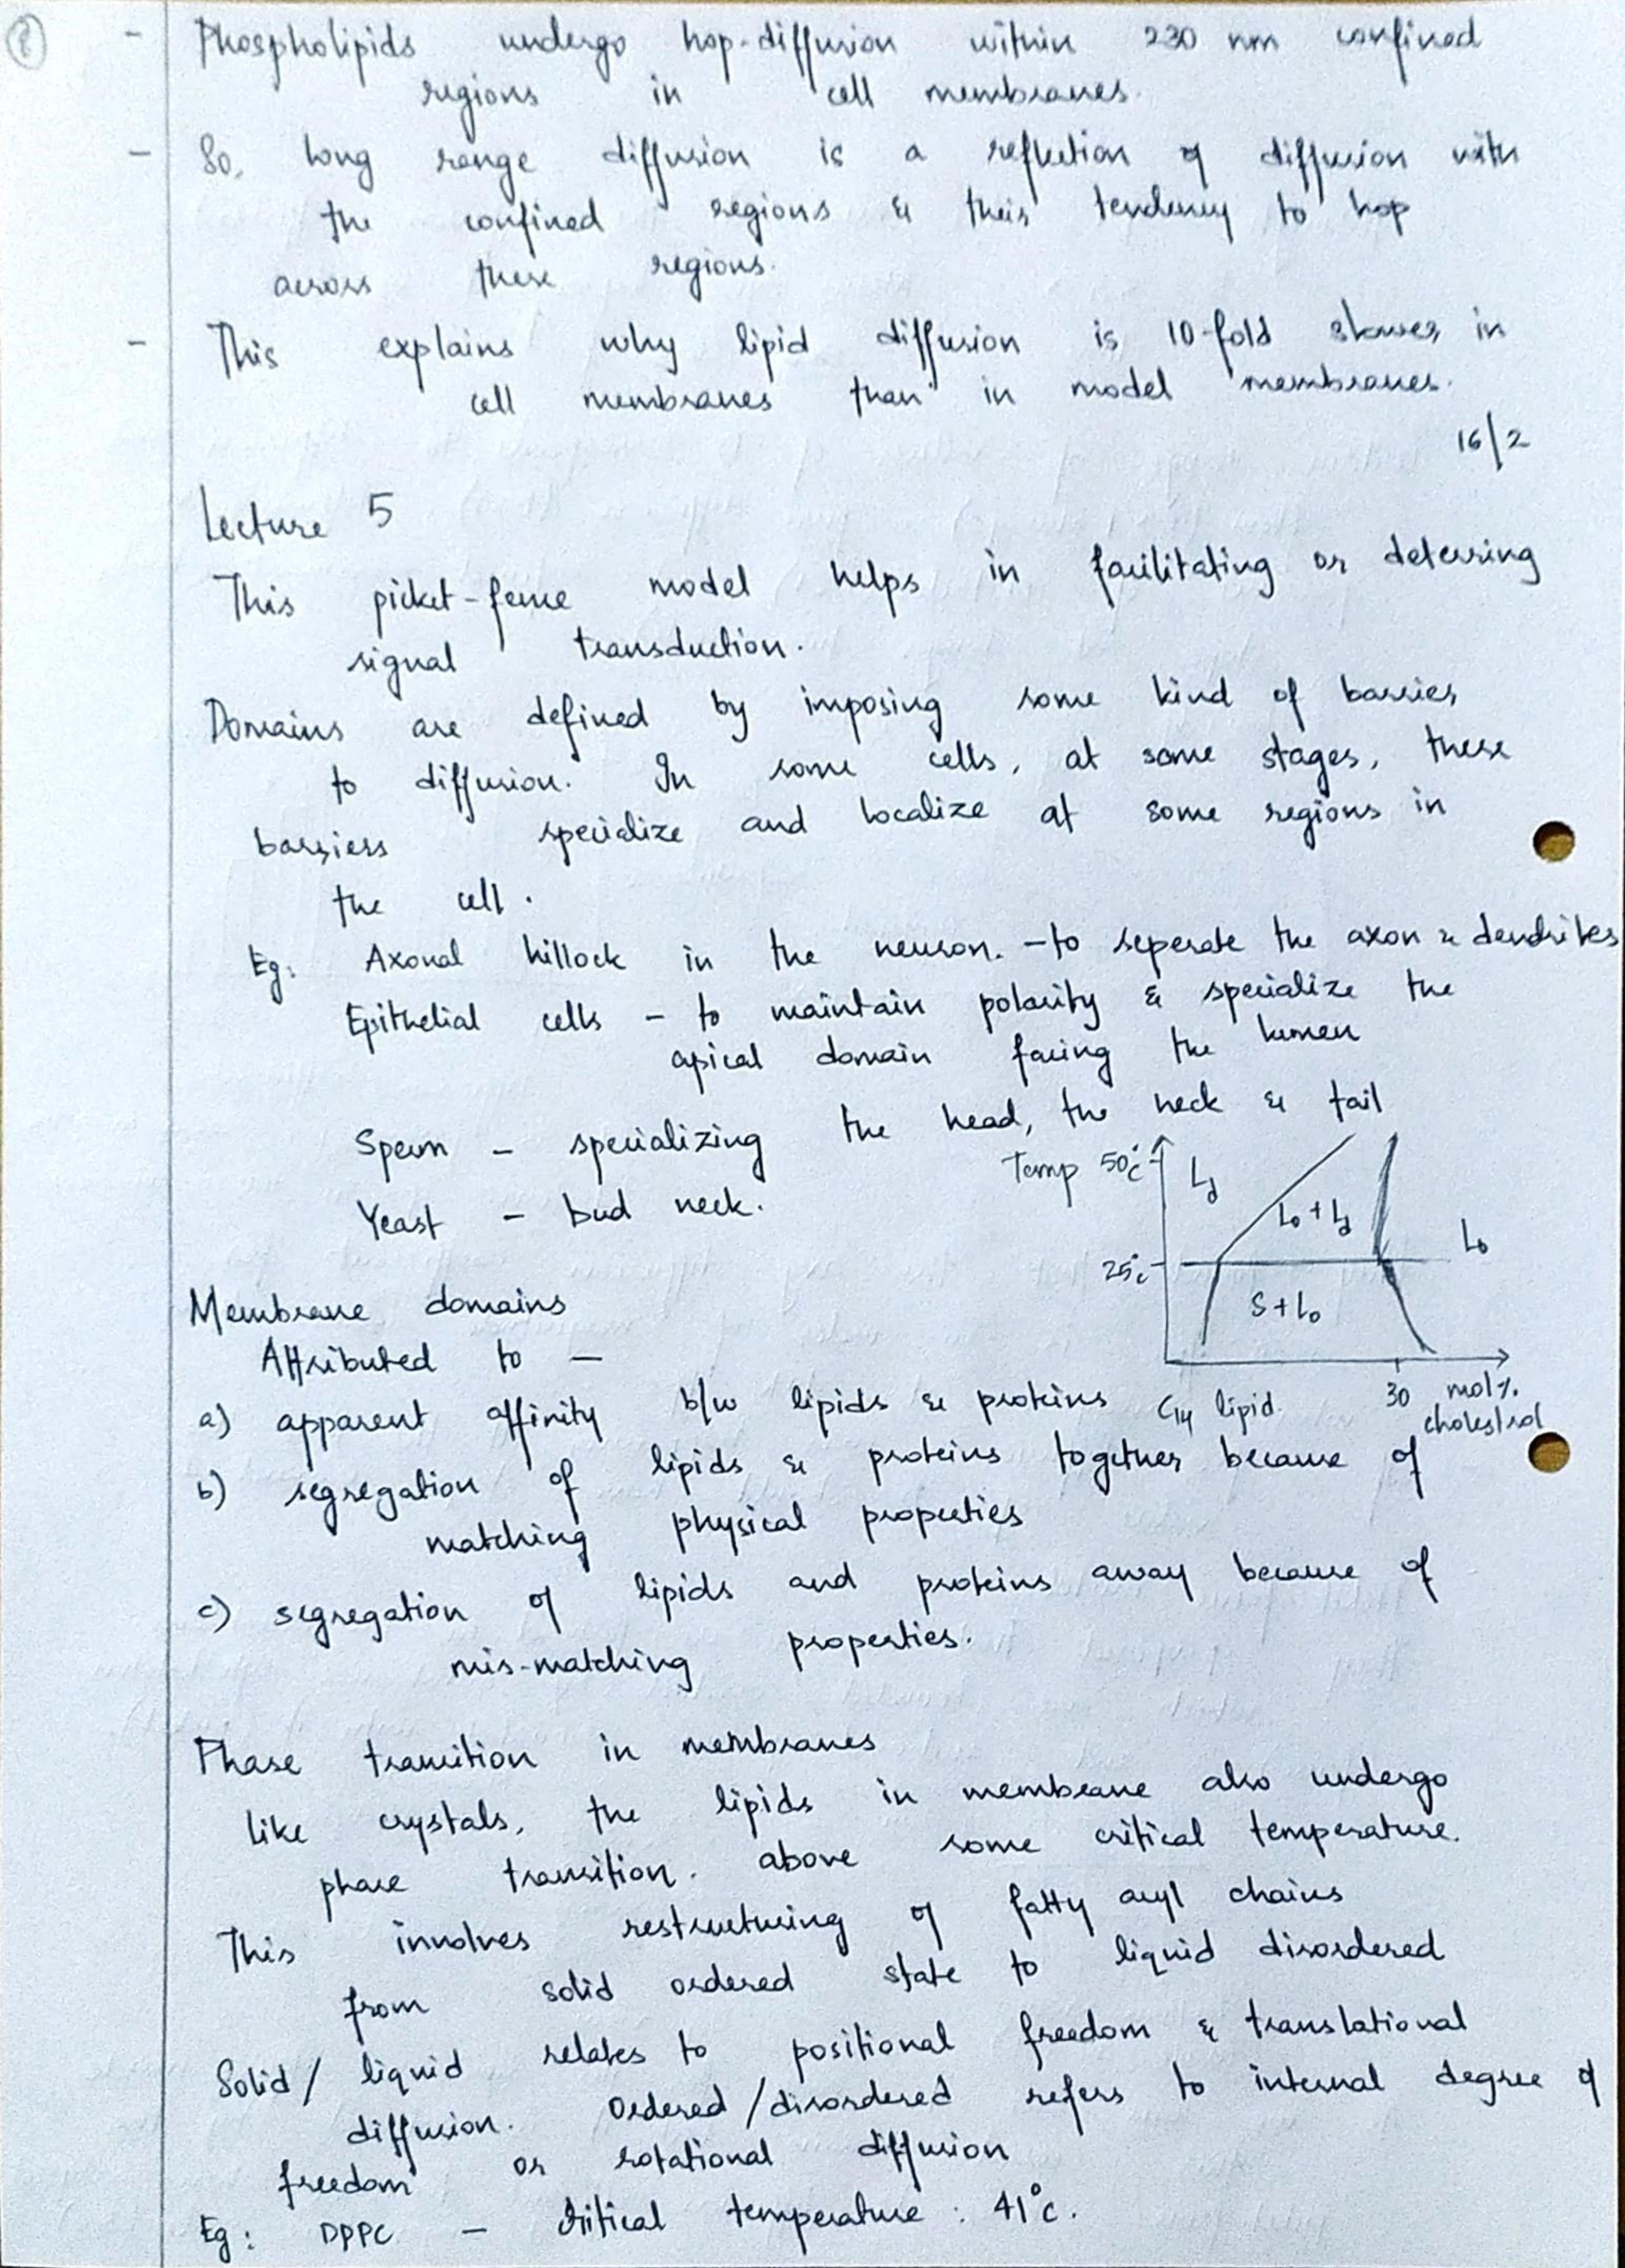 8
- Phospholipids undergo hop-diffusion within 230 nm confined
regions in cell membranes.
- So, long range diffusion is a reflection of diffusion with
the confined regions & their tendency to hop
across these regions.
- This explains why lipid diffusion is 10-fold slower in
cell membranes than in model membranes.
16/2
Lecture 5
This picket-fence model helps in facilitating or deterring
signal transduction.
Domains are defined by imposing some kind of barrier
to diffusion. In some cells, at some stages, these
barriers specialize and localize at some regions in
the cell.
Eg: Axonal hillock in the neuron. - to seperate the axon & dendrites
Epithelial cells - to maintain polarity & specialize the
apical domain facing the lumen
Sperm - specializing the head, the neck & tail
Yeast - bud neck.
Temp 50°C
Ld
Lo + Ld
Lo
25°C
S + Lo
30 mol%
cholestrol
C14 lipid
Membrane domains
Attributed to —
a) apparent affinity b/w lipids & proteins
b) segregation of lipids & proteins together because of
matching physical properties
c) segregation of lipids and proteins away because of
mis-matching properties.
Phase transition in membranes
Like crystals, the lipids in membrane also undergo
phase transition. above some critical temperature.
This involves restructuring of fatty acyl chains
from solid ordered state to liquid disordered
Solid / liquid relates to positional freedom & translational
diffusion. Ordered / disordered refers to internal degree of
freedom or rotational diffusion
Eg: DPPC - critical temperature : 41°C.